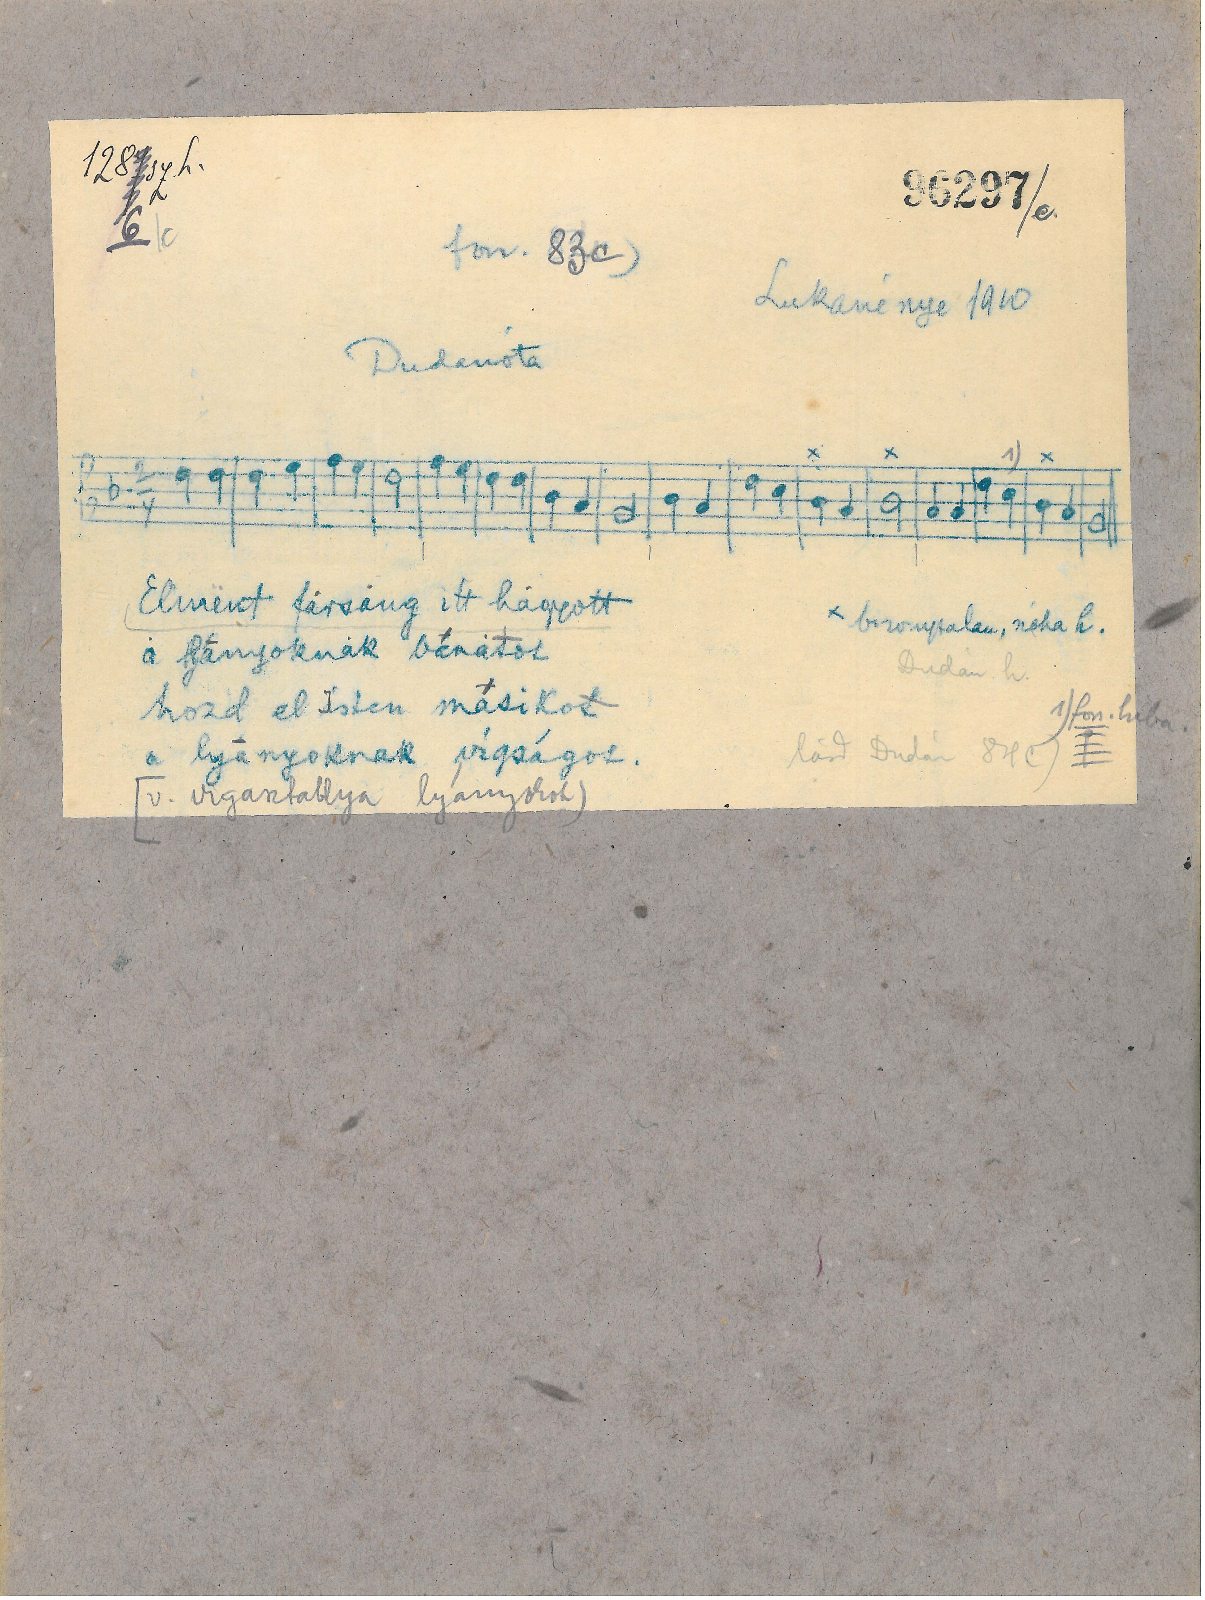 128
6 /c
96297/c.
fon. 83c)
Lukanénye 1910
Dudanóta
2/4
x x 1) x
Elmënt fársáng itt hágyott
á lyányoknák bánátot
hozd el Isten másikot
a lyányoknak vígságot.
[v. vigasztallya lyányokot)
x bizonytalan, néha h.
Dudán h.
1) fon. hiba.
lásd Dudán 84c)